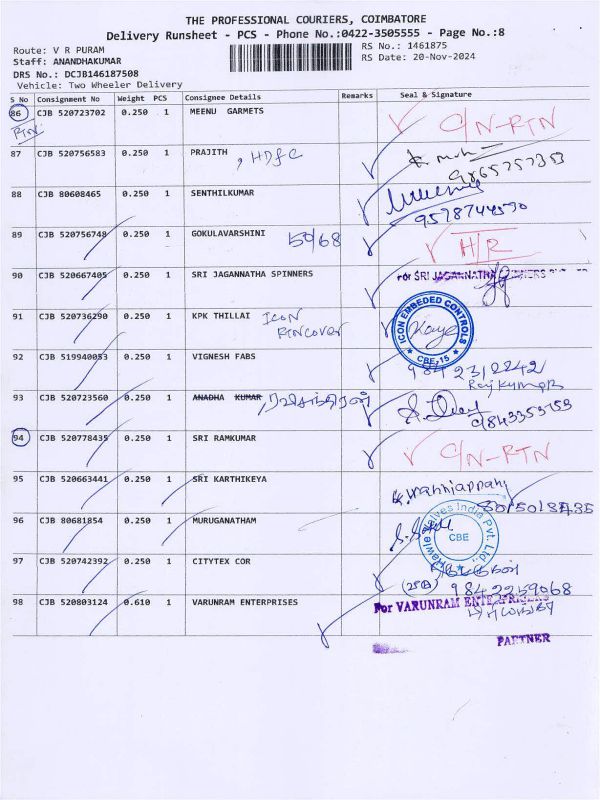 THE PROFESSIONAL COURIERS, COIMBATORE
Delivery Runsheet - PCS - Phone No.:0422-3505555 - Page No.:8
Route: V R PURAM RS No.: 1461875
Staff: ANANDHAKUMAR RS Date: 20-Nov-2024
DRS No.: DCJB146187508
Vehicle: Two Wheeler Delivery
S No Consignment No Weight PCS Consignee Details Remarks Seal & Signature
86 CJB 520723702 0.250 1 MEENU GARMETS C/N-RTN
RTN
87 CJB 520756583 0.250 1 PRAJITH , HDFC
88 CJB 80608465 0.250 1 SENTHILKUMAR
9578744530
89 CJB 520756748 0.250 1 GOKULAVARSHINI 50/68 H/R
90 CJB 520667405 0.250 1 SRI JAGANNATHA SPINNERS For SRI JAGANNATHA
91 CJB 520736290 0.250 1 KPK THILLAI ICON ICON EMBEDED CONTROLS CBE-15
92 CJB 519940083 0.250 1 VIGNESH FABS
Rajkumar
93 CJB 520723560 0.250 1 ANADHA KUMAR
94 CJB 520778435 0.250 1 SRI RAMKUMAR C/N-RTN
95 CJB 520663441 0.250 1 SRI KARTHIKEYA
96 CJB 80681854 0.250 1 MURUGANATHAM Valves India Pvt. Ltd. CBE
97 CJB 520742392 0.250 1 CITYTEX COR
9842259068
98 CJB 520803124 0.610 1 VARUNRAM ENTERPRISES For VARUNRAM ENTERPRISES
PARTNER